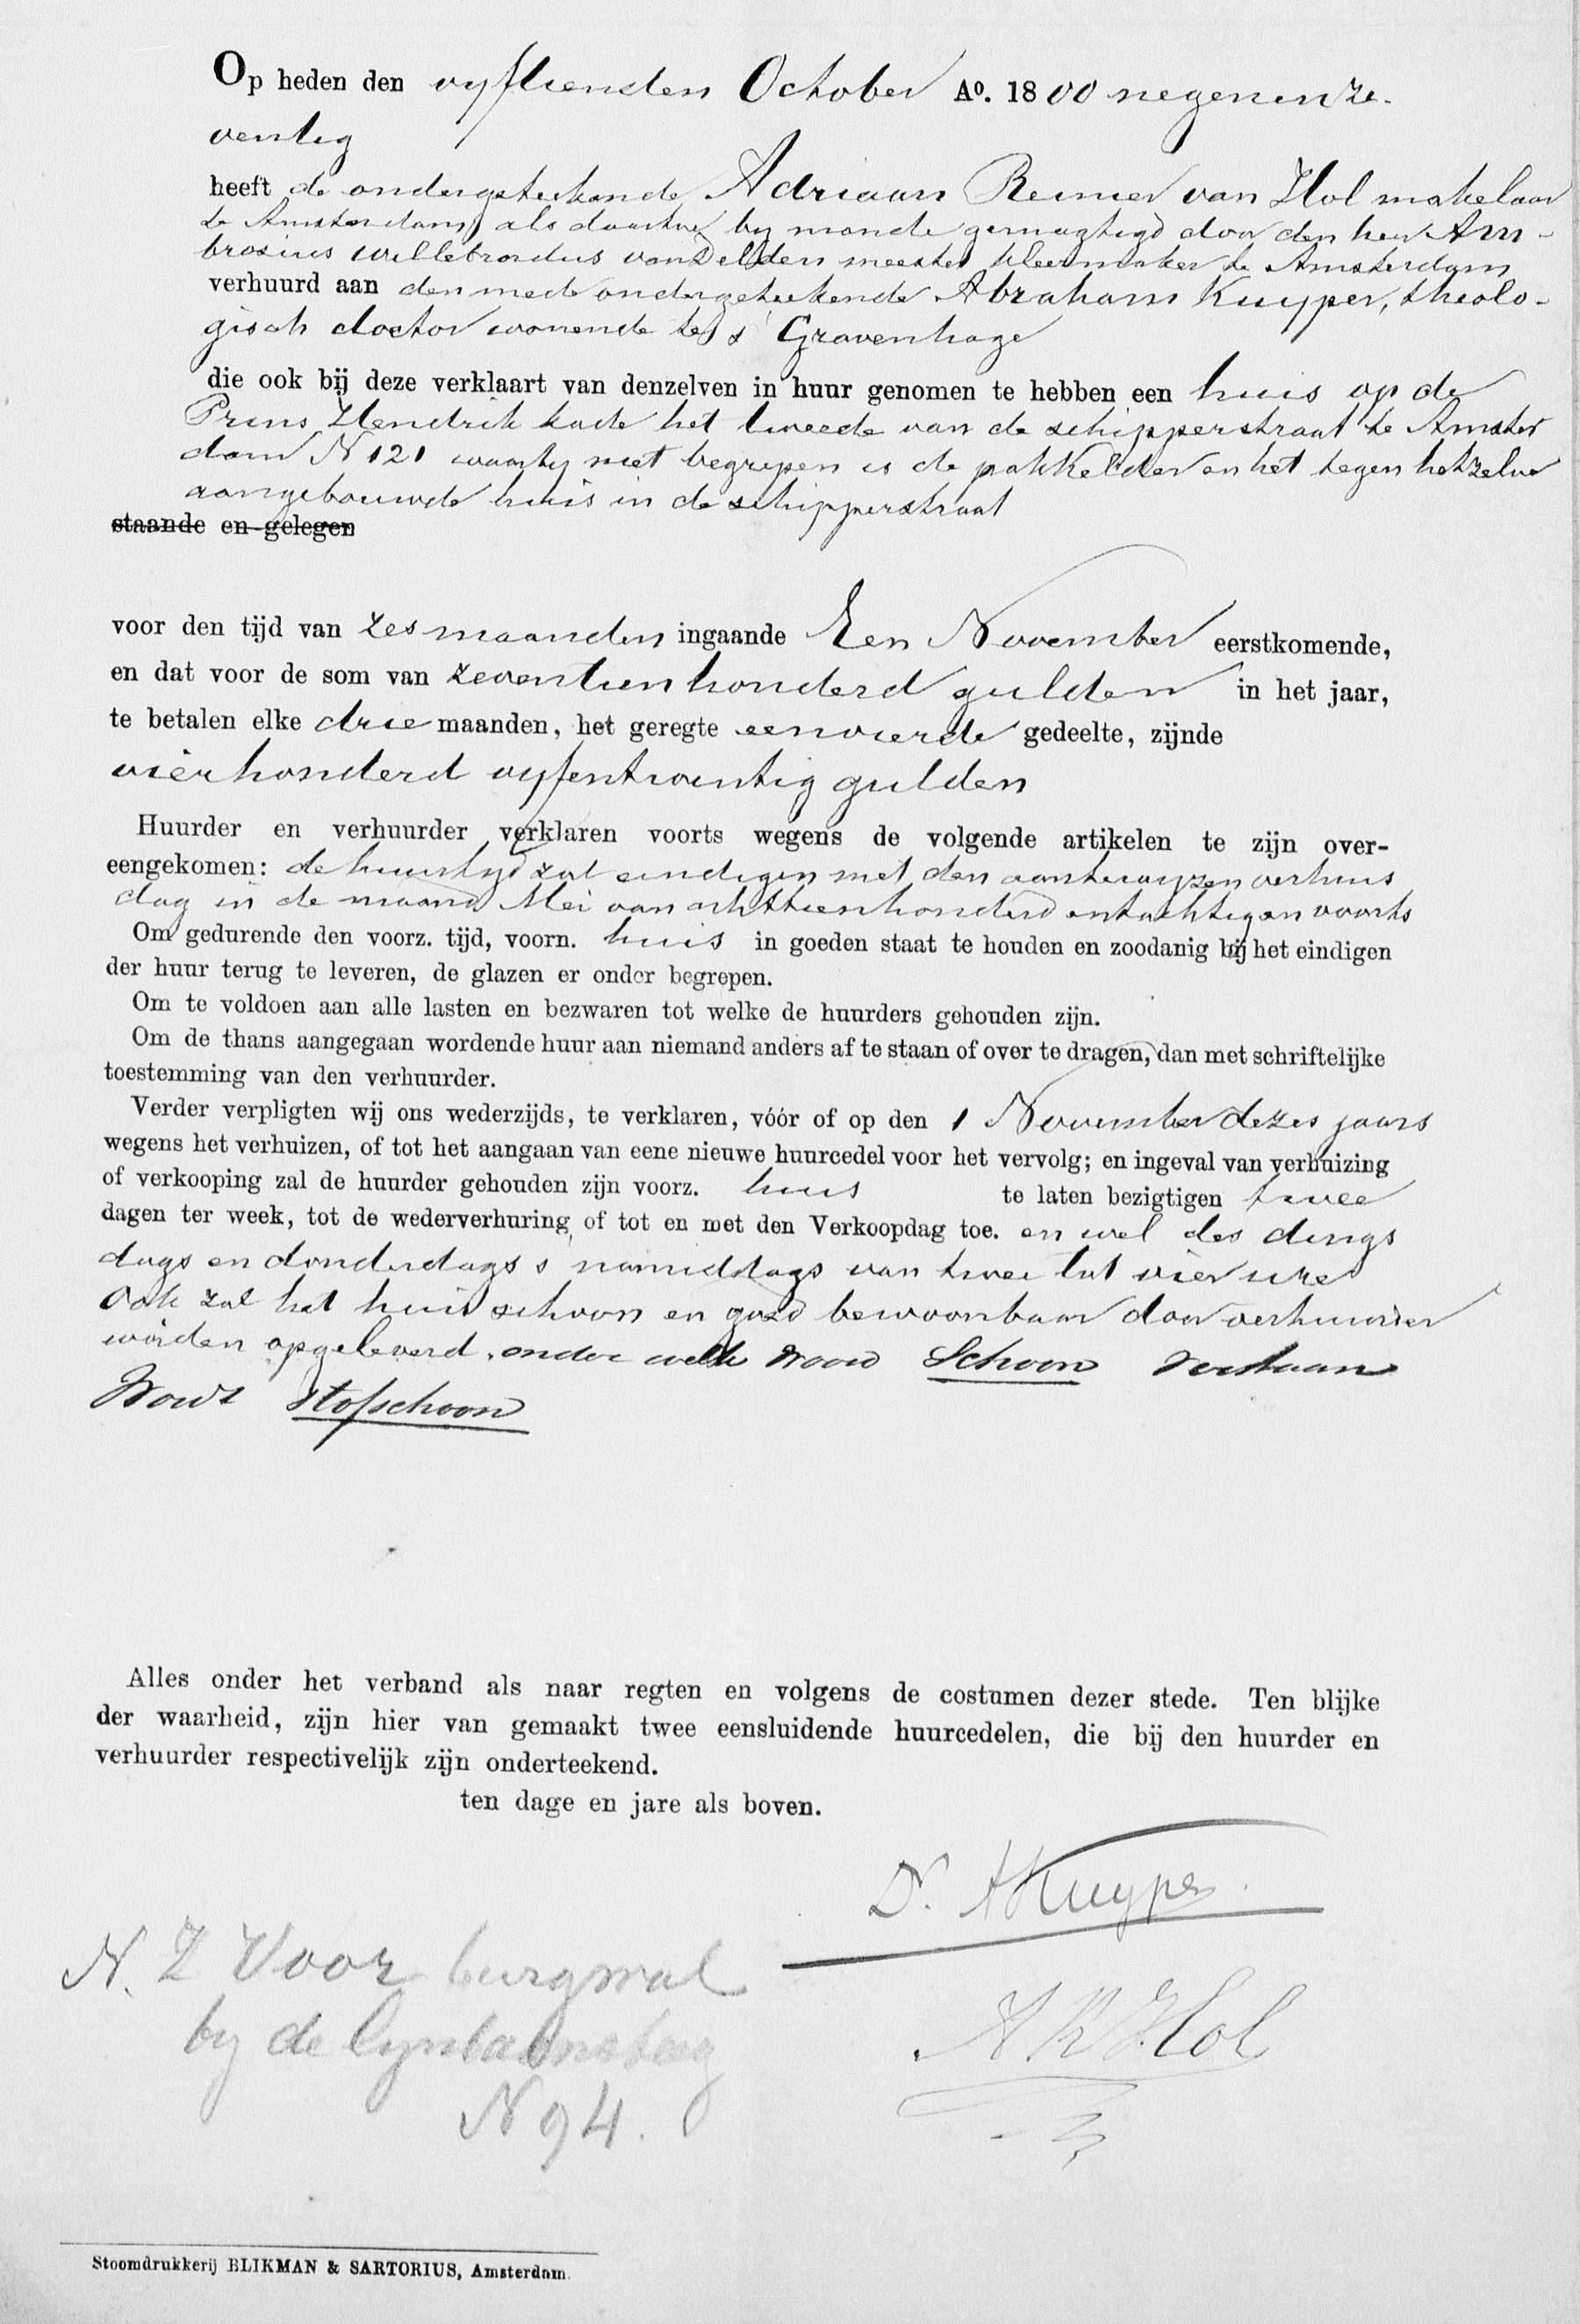 Op heden den vyftienden October Aº. 1800 negenenze-
ventig
heeft de ondergeteekende Adriaan Reinier van Hol makelaar
te Amsterdam als daartoe by monde gemagtigd door den heer Am-
brosius Willebrordus van Delden meester kleermaker te Amsterdam
verhuurd aan den mede ondergeteekende Abraham Kuyper, theolo-
gisch doctor wonende te s Gravenhage
die ook bij deze verklaart van denzelven in huur genomen te hebben een huis op de
Prins Hendrik kade het tweede van de schipperstraat te Amster
dam N 121 waarby niet begrepen is de pakkelder en het tegen hetzelve
aangebouwde huis in de schipperstraat
staande en gelegen
voor den tijd van zes maanden ingaande Een November eerstkomende,
en dat voor de som van zeventienhonderd gulden in het jaar,
te betalen elke drie maanden, het geregte eenvierde gedeelte, zijnde
vierhonderd vyfentwentig gulden
Huurder en verhuurder verklaren voorts wegens de volgende artikelen te zijn over-
eengekomen: de huurtyd zal eindigen met den aantewyzen verhuis
dag in de maand Mei van achttienhonderd entachtig en voorts
Om gedurende den voorz. tijd, voorn. huis in goeden staat te houden en zoodanig bij het eindigen
der huur terug te leveren, de glazen er onder begrepen.
Om te voldoen aan alle lasten en bezwaren tot welke de huurders gehouden zijn.
Om de thans aangegaan wordende huur aan niemand anders af te staan of over te dragen, dan met schriftelijke
toestemming van den verhuurder.
Verder verpligten wij ons wederzijds, te verklaren, vóór of op den 1 November dezes jaars
wegens het verhuizen, of tot het aangaan van eene nieuwe huurcedel voor het vervolg; en ingeval van verhuizing
of verkooping zal de huurder gehouden zijn voorz. huis te laten bezigtigen twee
dagen ter week, tot de wederverhuring of tot en met den Verkoopdag toe. en wel des dings
dags en donderdags s namiddags van twee tot vier ure
Ook zal het huis schoon en goed bewoonbaar door verhuurder
worden opgeleverd. onder welk woord Schoon verstaan
word stofschoon
Alles onder het verband als naar regten en volgens de costumen dezer stede. Ten blijke
der waarheid, zijn hier van gemaakt twee eensluidende huurcedelen, die bij den huurder en
verhuurder respectivelijk zijn onderteekend.
ten dage en jare als boven.
Dr. AKuyper.
N. Z Voor burgwal
by de Lynbaansteeg
N 94.
A R v Hol
Stoomdrukkerij BLIKMAN & SARTORIUS, Amsterdam.